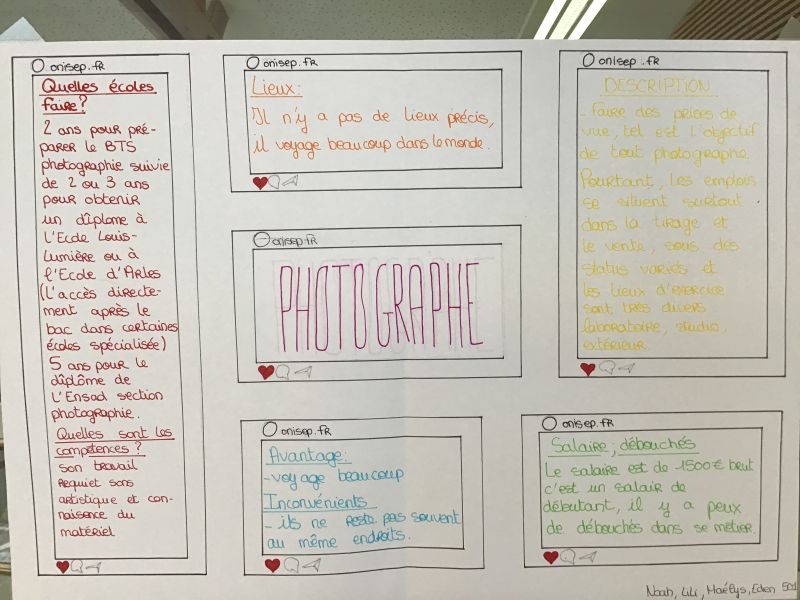 onisep.fr
Quelles écoles
faire?
2 ans pour pré-
parer le BTS
photographie suivie
de 2 ou 3 ans
pour obtenir
un dîplome à
l'Ecole Louis-
Lumière ou à
l'Ecole d'Arles
(l'accès directe-
ment après le
bac dans certaines
écoles spécialisée)
5 ans pour le
dîplôme de
l'Ensad section
photographie.
Quelles sont les
compétences?
son travail
requiet sons
artistique et con-
naisence du
matériel
onisep.fr
Lieux:
Il n'y a pas de lieux précis,
il voyage beaucoup dans le monde.
onisep.fr
PHOTOGRAPHE
onisep.fr
Avantage:
-voyage beaucoup
Inconvénients
- ils ne reste pas souvent
au même endroits.
onisep.fr
DESCRIPTION
- Faire des prises de
vue, tel est l'objectif
de tout photographe.
Pourtant, les emplois
se situent surtout
dans la tirage et
le vente, sous des
status variés et
les lieux d'exercice
sont très divers:
laboratoire, studio,
extérieur.
onisep.fr
Salaire; débouchés
Le salaire est de 1500€ brut
c'est un salair de
débutant, il y a peux
de débouchés dans se métier.
Noah, Lili, Maélys, Eden 501